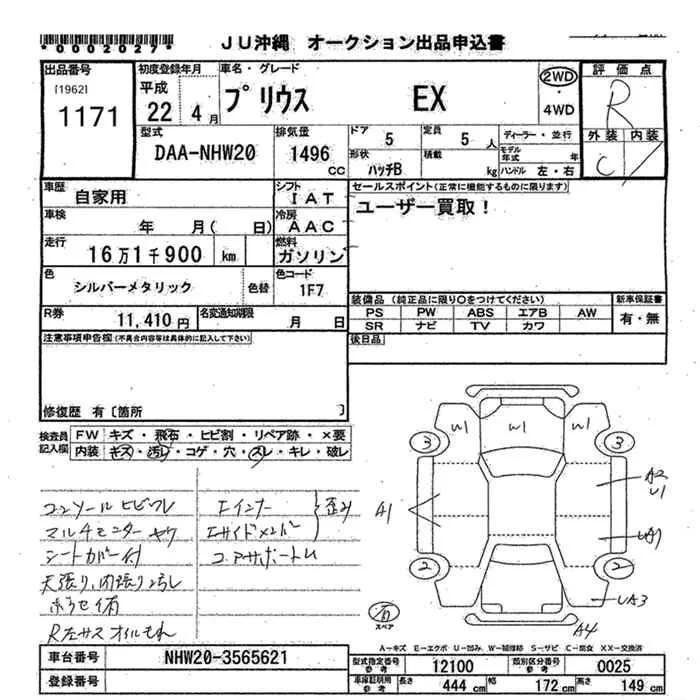 *0002027*
JU沖縄 オークション出品申込書
出品番号
[1962]
1171
初度登録年月
平成
22 年 4 月
車名・グレード
プリウス EX
2WD
・
4WD
評価点
R
外装 内装
C
型式
DAA-NHW20
排気量
1496
CC
ドア 5
定員 5 人
形状 ハッチB
積載 kg
ディーラー・並行
モデル年式 年
ハンドル 左・右
車歴 自家用
シフト IAT
車検 年 月( 日)
冷房 AAC
走行 16万1千900 km
燃料 ガソリン
色 シルバーメタリック 色替
色コード 1F7
R券 11,410 円
名変通知期限 月 日
セールスポイント(正常に機能するものに限ります)
ユーザー買取!
装備品 (純正品に限り○をつけてください)
新車保証書
PS PW ABS エアB AW
有・無
SR ナビ TV カワ
後日品
注意事項申告欄(不具合内容等は具体的に記入して下さい)
修復歴 有〔箇所 〕
検査員記入欄
FW キズ・飛石・ヒビ割・リペア跡・×要
内装 キズ・汚レ・コゲ・穴・スレ・キレ・破レ
コンソールヒビワレ
マルチモニターヤケ
シートカバー付
天張り、内張り汚レ
R左サスオイルもれ
Fインナー
Fサイドメンバー
歪み
コアサポートム
W1 W1 W1
3 3
A1
A2
U1
UA1
2 2
UA3
A4
有
スペア
A−キズ E−エクボ U−凹み W−補修跡 S−サビ C−腐食 XX−交換済
車台番号 NHW20-3565621
登録番号
型式指定番号
参考
12100
類別区分番号
参考
0025
車線証明用
参考
長さ 444 cm
幅 172 cm
高さ 149 cm